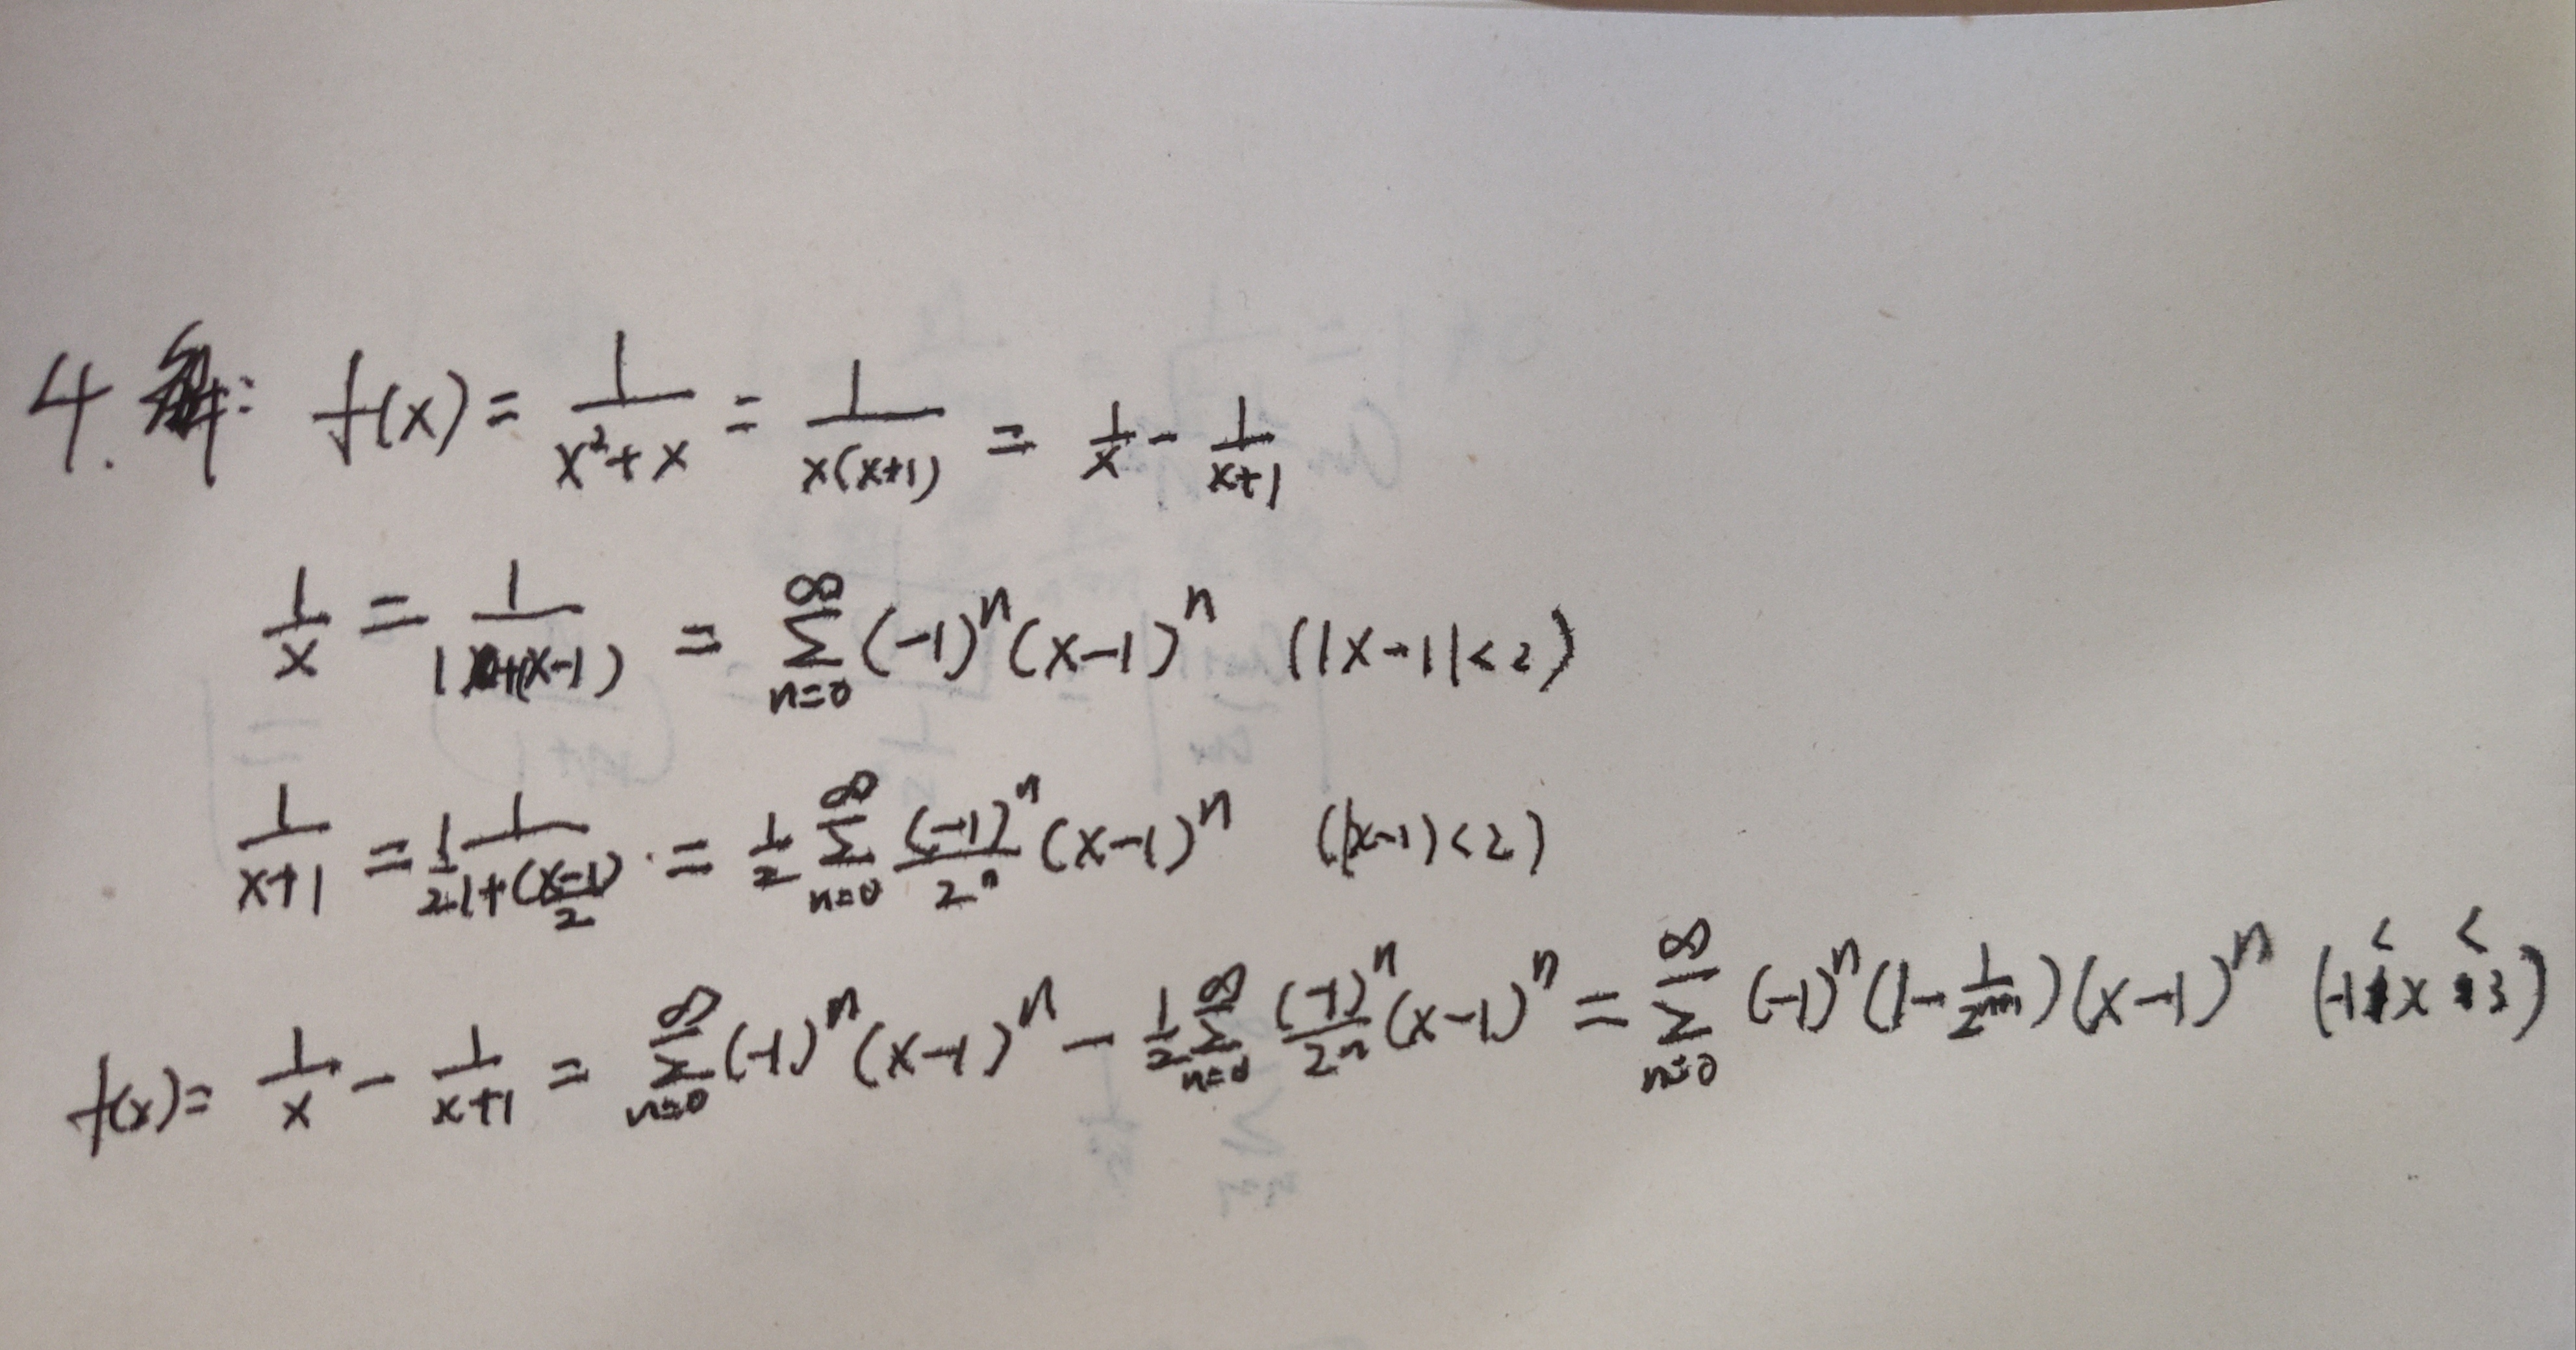 4. 解: f(x) = 1/(x²+x) = 1/(x(x+1)) = 1/x - 1/(x+1)
1/x = 1/(1+(x-1)) = ∑_{n=0}^{∞} (-1)^n (x-1)^n (|x-1|<2)
1/(x+1) = 1/2 1/(1+(x-1)/2) = 1/2 ∑_{n=0}^{∞} (-1)^n/2^n (x-1)^n (|x-1)<2)
f(x) = 1/x - 1/(x+1) = ∑_{n=0}^{∞} (-1)^n (x-1)^n - 1/2 ∑_{n=0}^{∞} (-1)^n/2^n (x-1)^n = ∑_{n=0}^{∞} (-1)^n (1 - 1/2^{n+1}) (x-1)^n (-1<x<3)